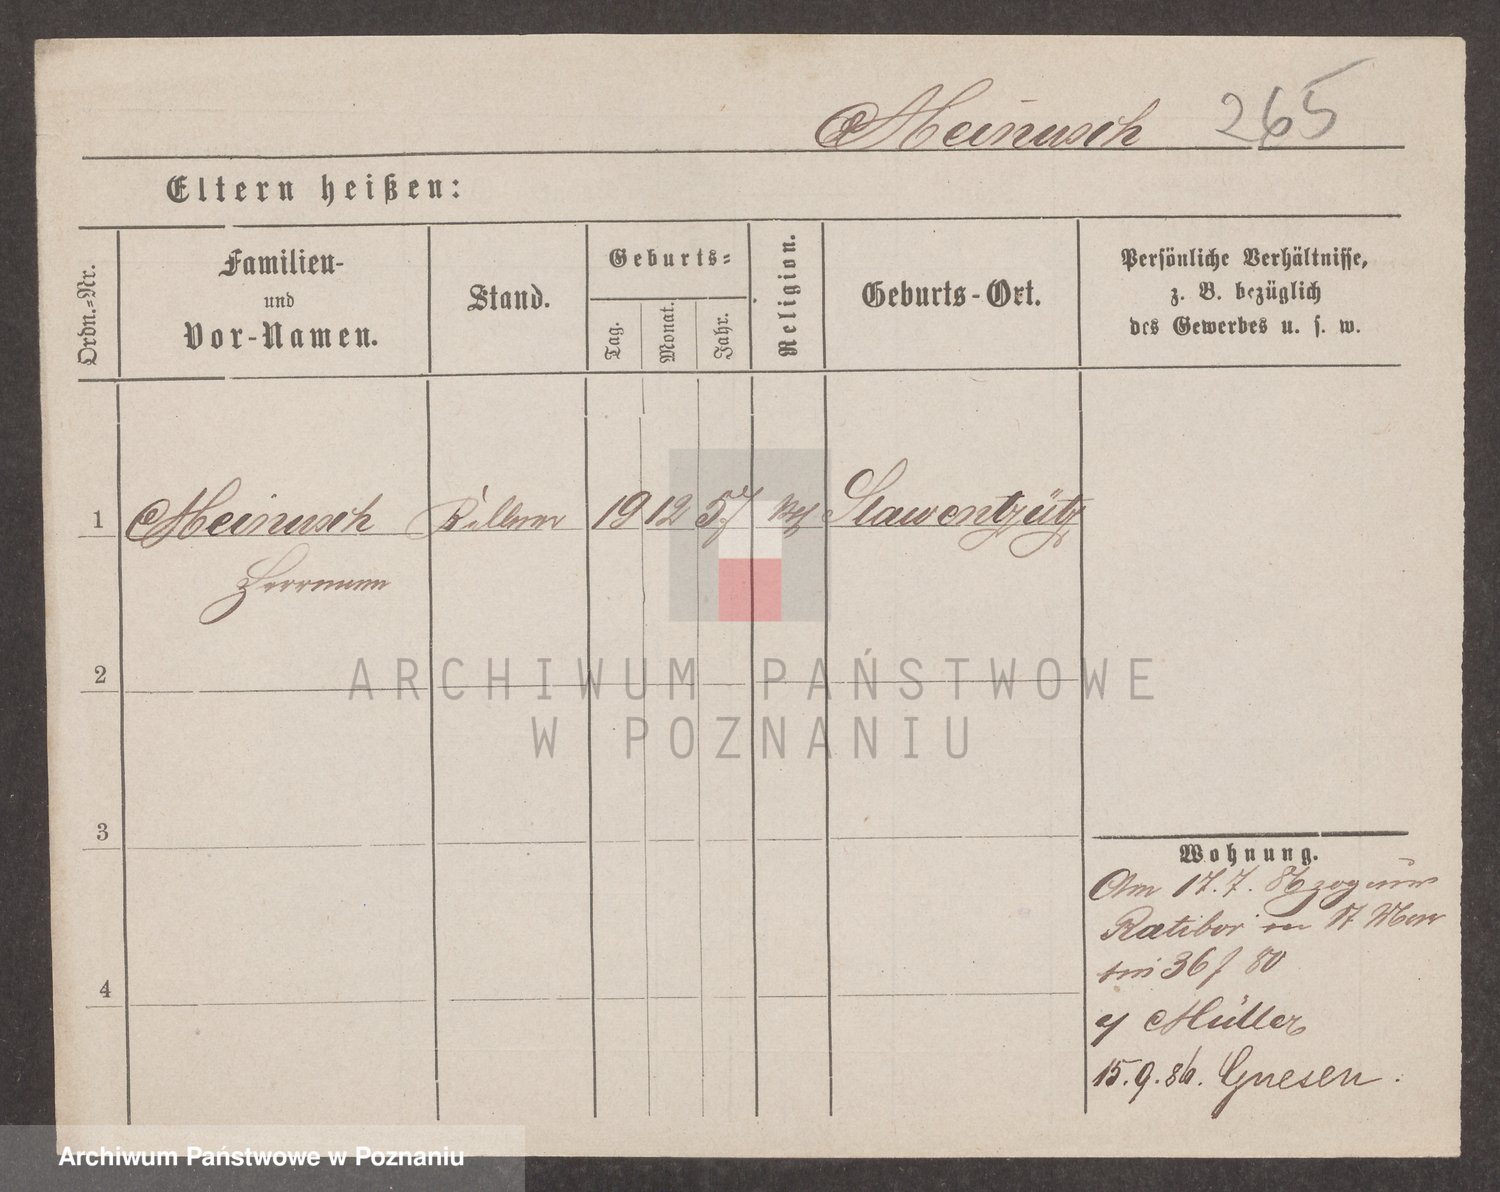 Meinusch 265
Eltern heißen:
Ordn.-Nr.
Familien-
und
Vor-Namen.
Stand.
Geburts-
Tag.
Monat.
Jahr.
Religion.
Geburts-Ort.
Persönliche Verhältnisse,
z. B. bezüglich
des Gewerbes u. s. w.
1 Meinusch Kellner 19 12 57 Slawentzütz
Herrmann
2
ARCHIWUM PAŃSTWOWE
W POZNANIU
3
Wohnung.
Am 17.7. 86 zog von
Ratibor St Mar
tin 36 / 80
Müller
4
15.9.86. Gnesen.
Archiwum Państwowe w Poznaniu